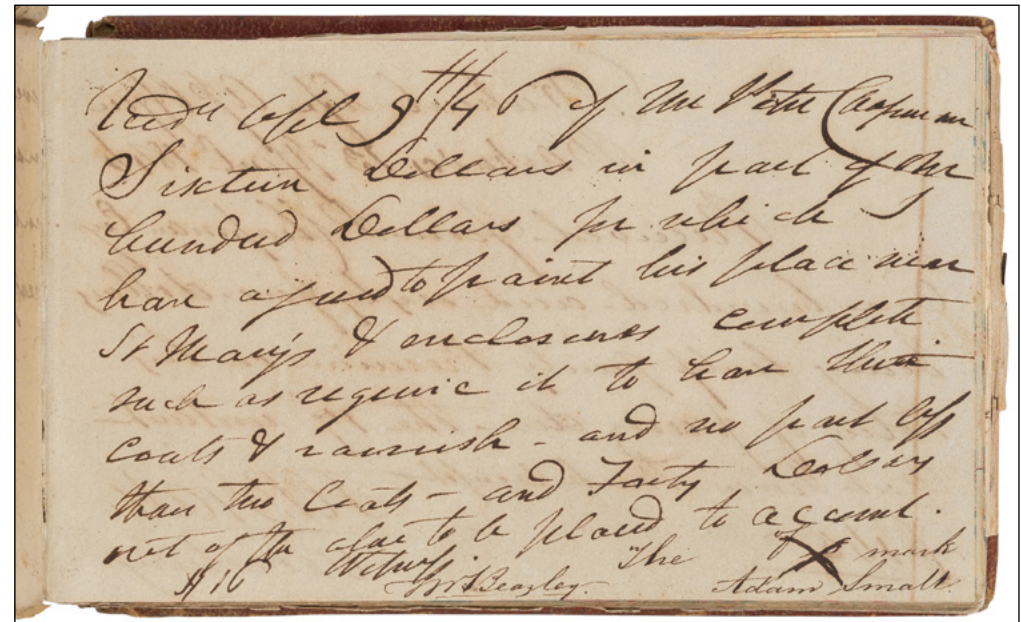 Recd Apl 9th/46 of Mr Peter Chapman
Sixteen Dollars in part of One
hundred Dollars for which
have agreed to paint his place near
St Mary's & enclosures complete
such as require it to have three
coats & varnish - and no part less
than two Coats - and Forty Dollars
out of the above to be placed to account.
$16 Witness. The X mark
Beazley. Adam Small